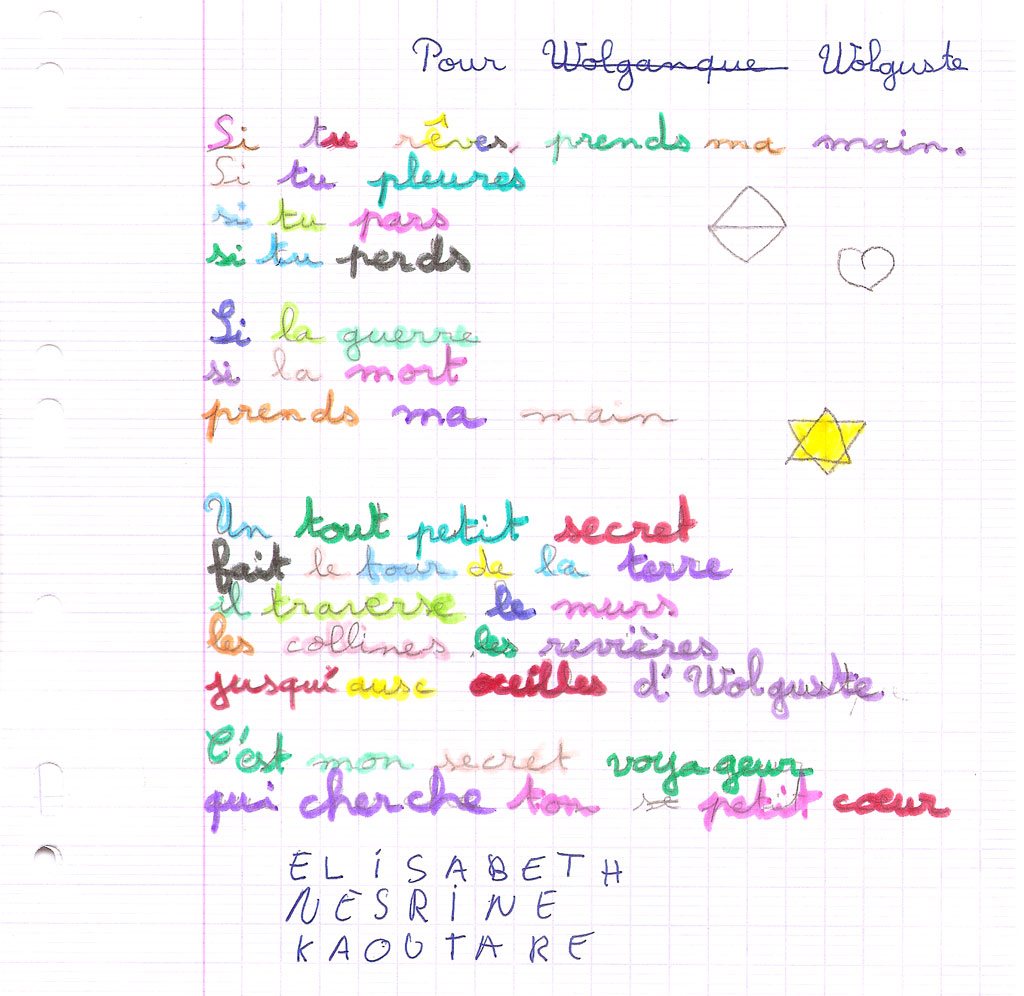 Pour Wolganque Wolguste
Si tu rêves, prends ma main.
Si tu pleures
si tu pars
si tu perds
Si la guerre
si la mort
prends ma main
Un tout petit secret
fait le tour de la terre
il traverse le murs
les collines les revières
jusqui ausc oreilles d'Wolguste.
C'est mon secret voyageur
qui cherche ton se petit cœur
ELISABETH
NESRINE
KAOUTARE